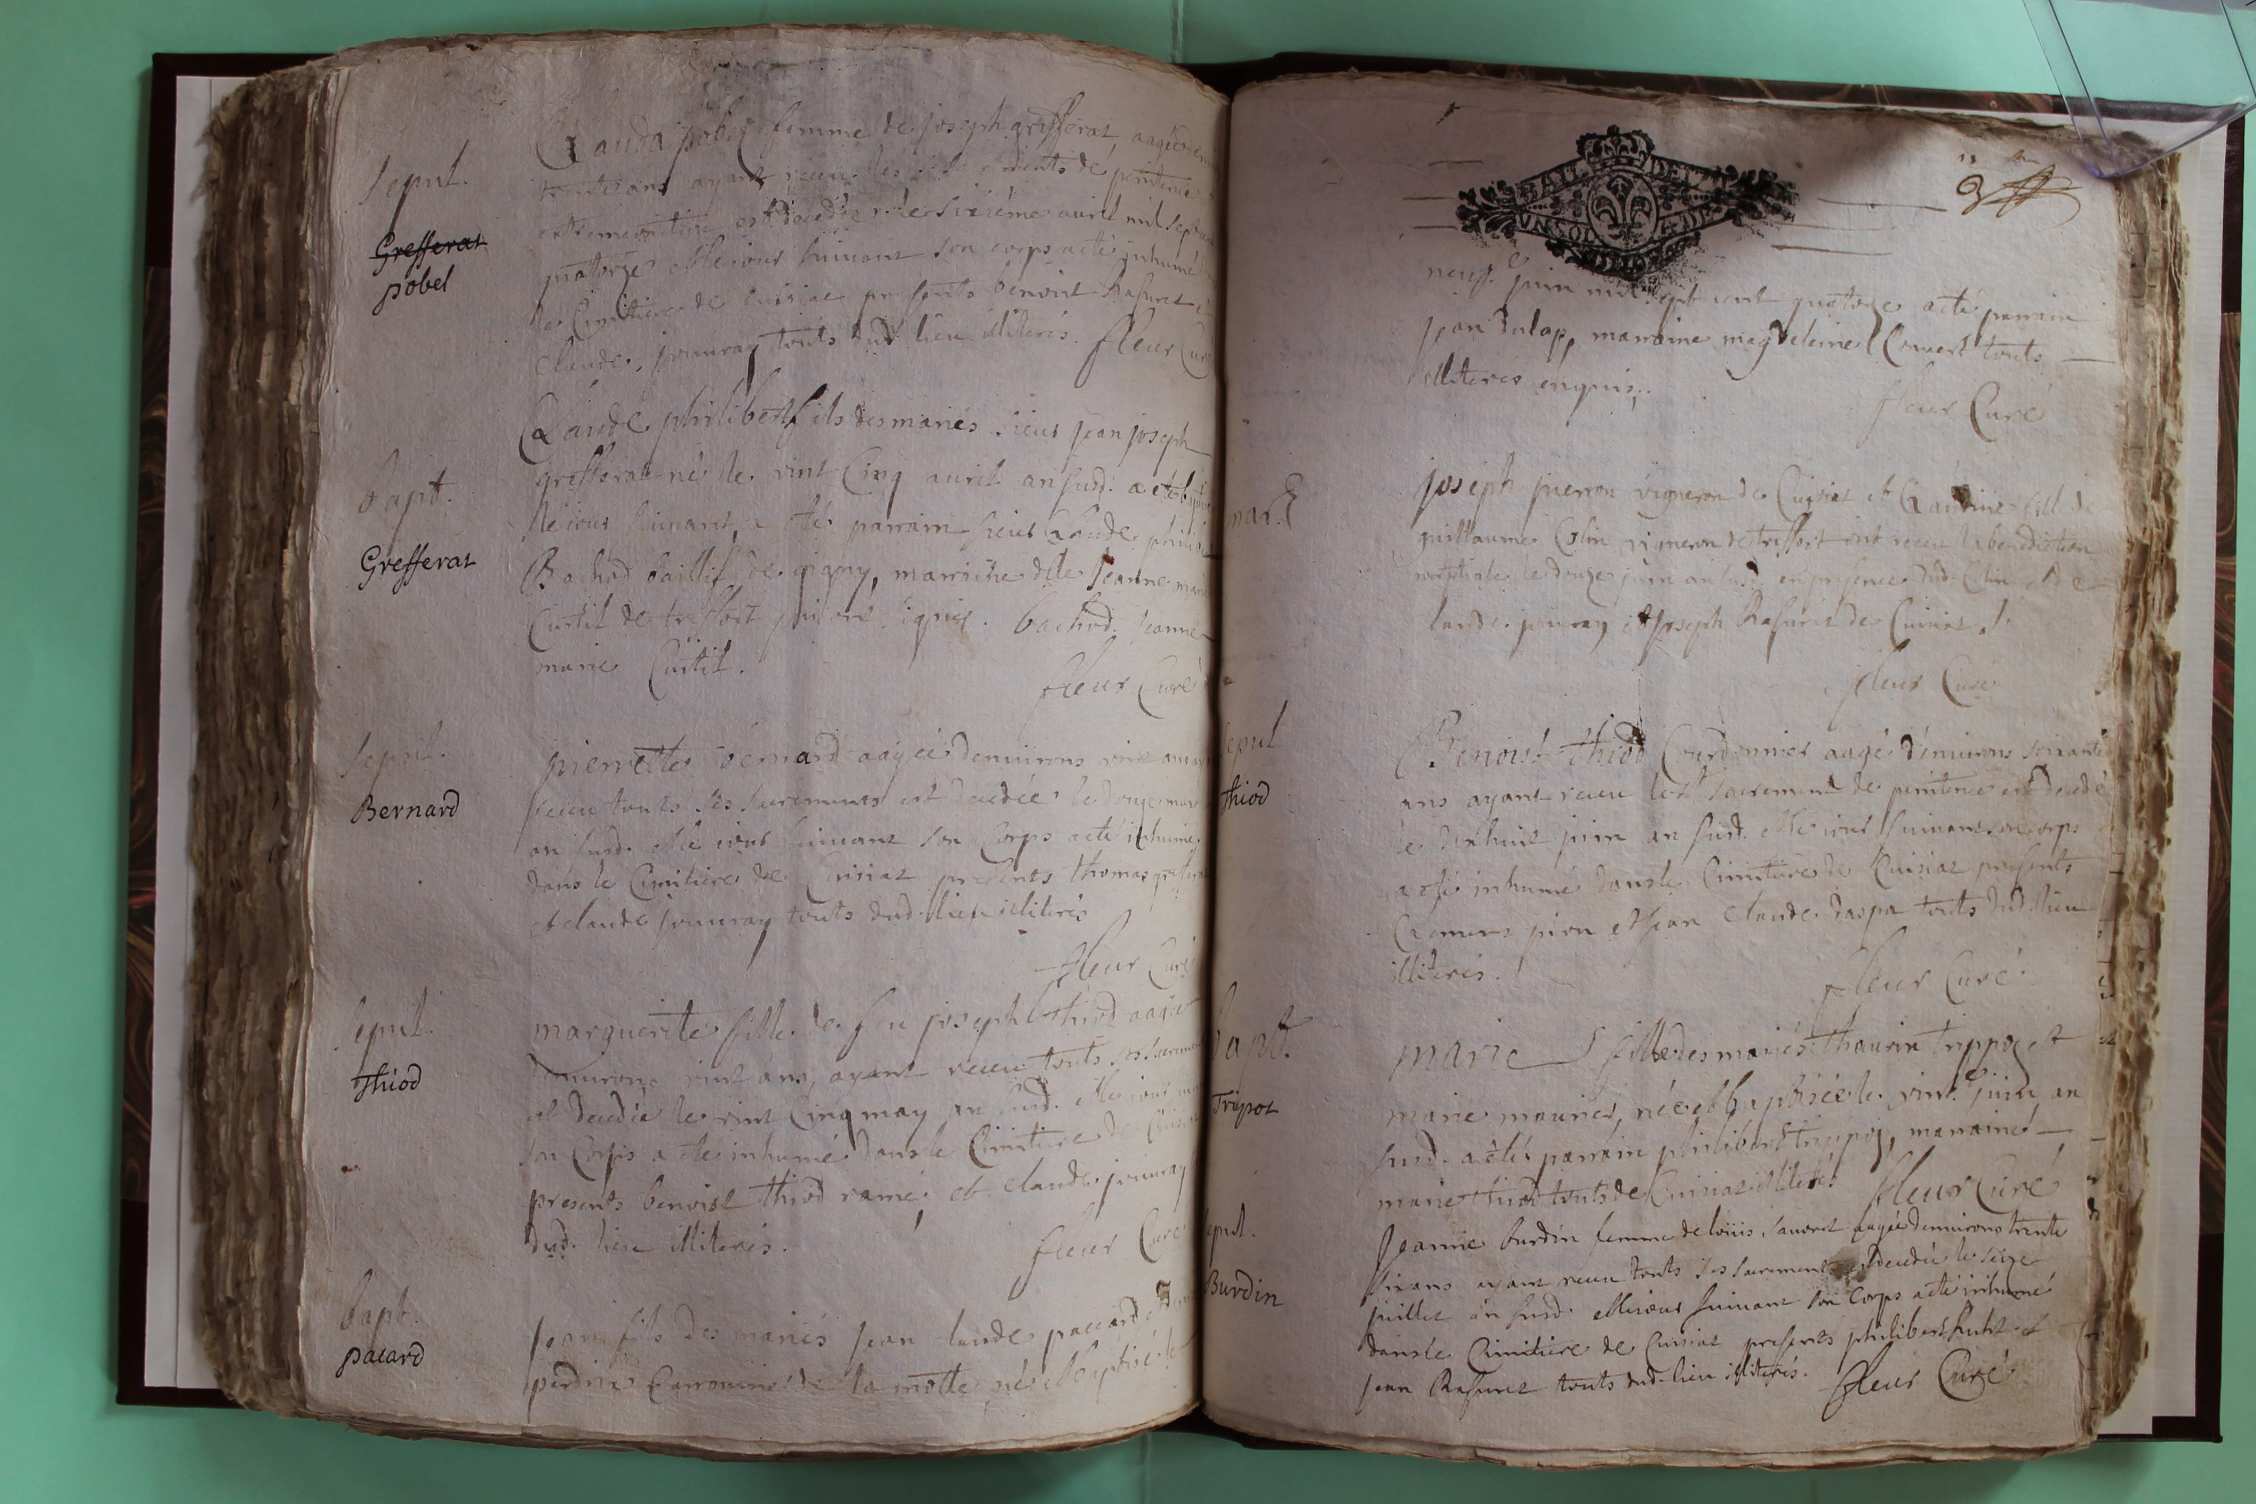 Sepul.
Grefferat
pobel
Clauda pobel femme de joseph grefferat, aagée
trente ans ayant receu les sacrements de penitence
extremeonction est decedée le sixiéme auril mil sept
quatorze et le iour suiuant son corps a eté inhumé
le Cimitiere de Cuisiat presents benoist Rafuret et
Claude jouuray touts dud. lieu illiterés. fleur Curé
bapt.
Grefferat
Claude philibert fils des mariés sieur jean joseph
grefferat né le vint Cinq auril an susd. a eté baptisé
le iour suiuant, a eté parrain sieur Claude
Bachod baillif de gigny, marraine dlle Jeanne marie
Curtil de treffort signés. bachod. jeanne
marie Curtil.
fleur Curé
Sepul.
Bernard
pierrette bernard aagée denuirons vint ans
receu touts ses sacrements est decedée le douze
an susd. et le iour suiuant son Corps a eté inhumé
dans le Cimitiere de Cuisiat presents thomas grefferat
et claude jouuray touts dud. lieu illiterés
fleur Curé
Sepul.
Thiod
marguerite fille de feu joseph thiod aagée
denuirons vint ans, ayant receu touts ses sacrements
est decedée le vint Cinq may an susd. et le iour
son Corps a eté inhumé dans le Cimitiere de Cuisiat
presents benoist thiod ramé, et claude jouuray
dud. lieu illiterés.
fleur Curé
bapt.
pacard
jean fils des mariés jean claude paccard et
perdrix Carronnier de la motte né et baptisé le
BAIL DE
VN SOL 4 DE
neuf juin mil sept cent quatorze a eté parrain
jean dulap, marraine magdeleine Convert touts
illiteres enquis.
fleur Curé
mar.
joseph pierron vigneron de Cuisiat et Claudine fille de
guillaume Colin vigneron de treffort ont receu la benediction
nuptiale le douze juin an susd. en presence dud. Colin et de
Claude jouuray et joseph Rafuret de Cuisiat.
fleur Curé
Sepul
Thiod
Benoist thiod Courdonnier aagé d'enuirons soixante
ans ayant receu le sacrement de penitence est decedé
le dixhuit juin an susd. et le iour suiuant son corps
a eté inhumé dans le Cimitiere de Cuisiat presents
Clemens piron et jean claude daspa touts dud. lieu
illiterés.
fleur Curé
bapt.
Tripot
marie fille des mariés thaurin trippoz et
marie mourier, née et baptisée le vint juin an
susd. a eté parrain philibert trippoz, marraine
marie thiod touts de Cuisiat illiterés fleur Curé
Sepul.
Burdin
jeanne burdin femme de louis sauoret aagée denuirons trente
six ans ayant receu touts ses sacrements est decedée le seize
juillet an susd. et le iour suiuant son Corps a eté inhumé
dans le Cimitiere de Cuisiat presents philibert et
jean Rafuret touts dud. lieu illiterés. fleur Curé